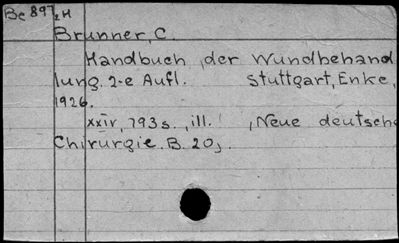 Be 897/2H
Brunner, C.
Handbuch der Wundbehand
lung. 2-e Aufl. Stuttgart, Enke,
1926.
xxiv, 793s., ill. , (Neue deutsche
Chirurgie. B. 20).